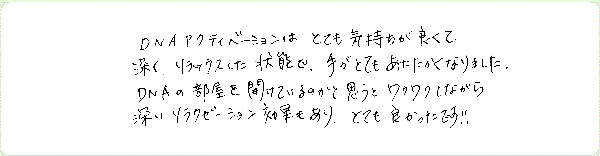 DNAアクティベーションは とても 気持ちが良くて
深く、リラックスした状態で、手がとてもあたたかくなりました。
DNAの部屋を開けているのかと思うとワクワクしながら
深いリラクゼーション効果もあり、とても良かったです!!